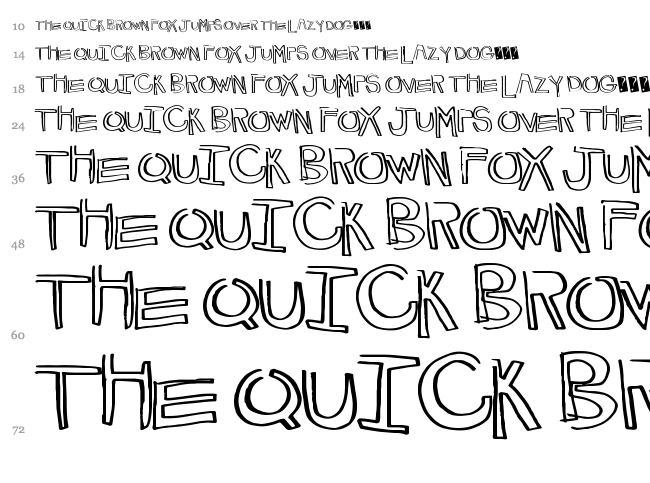 10 THE QUICK BROWN FOX JUMPS OVER THE LAZY DOG
14 THE QUICK BROWN FOX JUMPS OVER THE LAZY DOG
18 THE QUICK BROWN FOX JUMPS OVER THE LAZY DOG
24 THE QUICK BROWN FOX JUMPS OVER THE L
36 THE QUICK BROWN FOX JUM
48 THE QUICK BROWN FO
60 THE QUICK BROW
72 THE QUICK BR